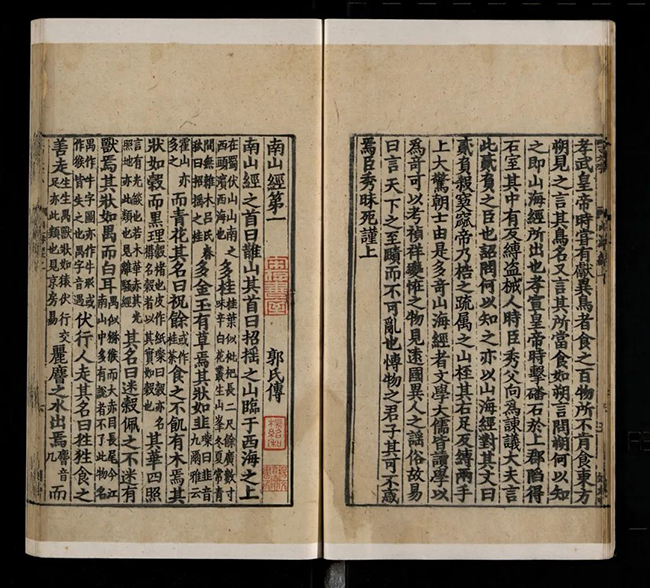 孝武皇帝時嘗有獻異鳥者食之百物所不肯食東方
朔見之言其鳥名又言其所當食如朔言問朔何以知
之即山海經所出也孝宣皇帝時擊磻石於上郡陷得
石室其中有反縛盜械人時臣秀父向為諫議大夫言
此貳負之臣也詔問何以知之亦以山海經對其文曰
貳負殺窫窳帝乃梏之疏属之山桎其右足反縛兩手
上大驚朝士由是多奇山海經者文學大儒皆讀學以
為奇可以考禎祥變怪之物見遠國異人之謡俗故易
曰言天下之至賾而不可亂也博物之君子其可不惑
焉臣秀昧死謹上
南山經第一 郭氏傳
南山經之首曰䧿山其首曰招摇之山臨于西海之上
在蜀伏山山南之西頭濱西海也多桂桂葉似枇杷長二尺餘廣數寸味辛白花叢生山峯冬夏常青
間無雜木吕氏春秋曰招摇之桂多金玉有草焉其狀如韭璨曰韭音九爾雅云
霍山亦多之而青花其名曰祝餘或作桂荼食之不飢有木焉其
狀如榖而黑理榖楮也皮作紙璨曰榖亦名構名榖者以其實如榖也其華四照
言有光燄也若木華赤其光照地亦此類也見離騷經其名曰迷榖佩之不迷有
獸焉其狀如禺而白耳禺似獼猴而大赤目長尾今江南山中多有說者不了此物名
禺作牛字圖亦作牛形或作猴皆失之也禺字音遇伏行人走其名曰狌狌食之
善走生生禺獸狀如猿伏行交足亦此類也見京房易麗𪊨之水出焉𪊨音几而